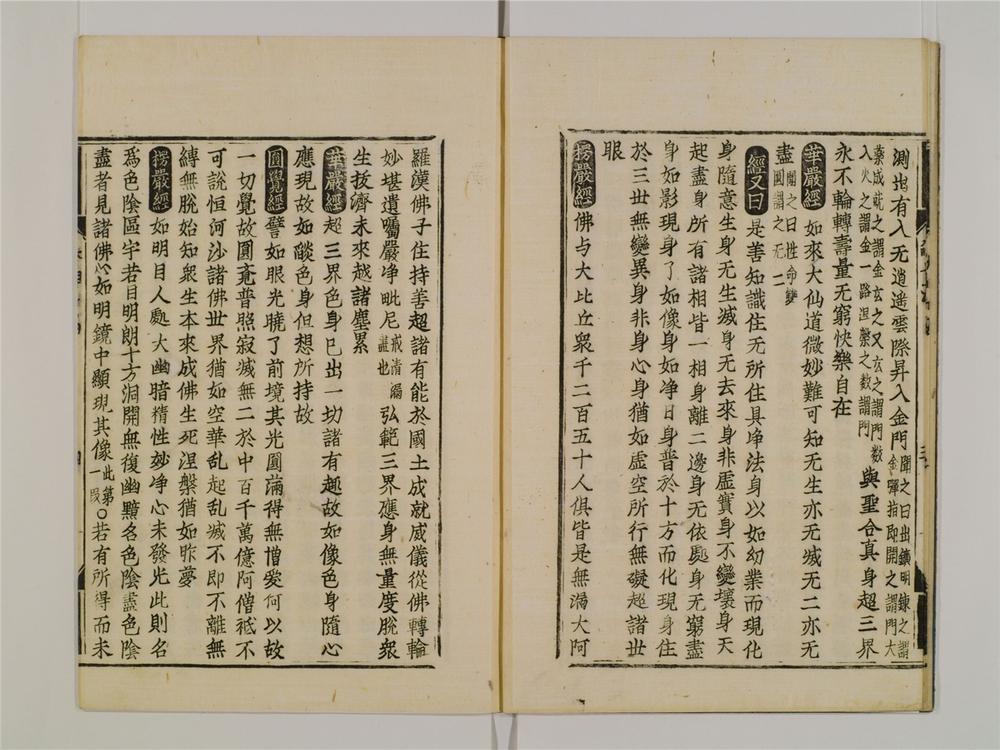 測地有入无逍遥雲際昇入金門聞之曰出鑛明鍊之謂
藥成就之謂金玄之又玄之謂門數金彈指即開之謂門大
入火之謂金一路涅槃之数謂門與聖合真身超三界
永不輪轉壽量无窮快樂自在
華嚴經如來大仙道微妙難可知无生亦无滅无二亦无
盡闡之曰性命雙圓謂之无二
經又曰是善知識住无所住具净法身以如幻業而現化
身隨意生身无生滅身无去來身非虛實身不變壞身天
起盡身所有諸相皆一相身離二邊身无依處身无窮盡
身如影現身了如像身如净日身普於十方而化現身住
於三丗無變異身非身心身猶如虛空所行無礙超諸丗
眼
楞嚴經佛与大比丘衆千二百五十人俱皆是無漏大阿
羅漢佛子住持善超諸有能於國土成就威儀從佛轉輪
妙堪遺囑嚴净毗尼戒清漏盡也弘範三界應身無量度脫衆
生拔濟未來越諸塵累
華嚴經超三界色身已出一切諸有趣故如像色身隨心
應現故如燄色身但想所持故
圓覺經譬如眼光曉了前境其光圓滿得無憎愛何以故
一切覺故圓竟普照寂滅無二於中百千萬億阿僧祇不
可說恒河沙諸佛丗界猶如空華乱起乱滅不即不離無
縛無脫始知衆生本來成佛生死涅槃猶如昨夢
楞嚴經如明目人處大幽暗精性妙净心未發光此則名
爲色陰區宇若目明朗十方洞開無復幽黯名色陰盡色陰
盡者見諸佛心如明鏡中顯現其像此第一段○若有所得而未